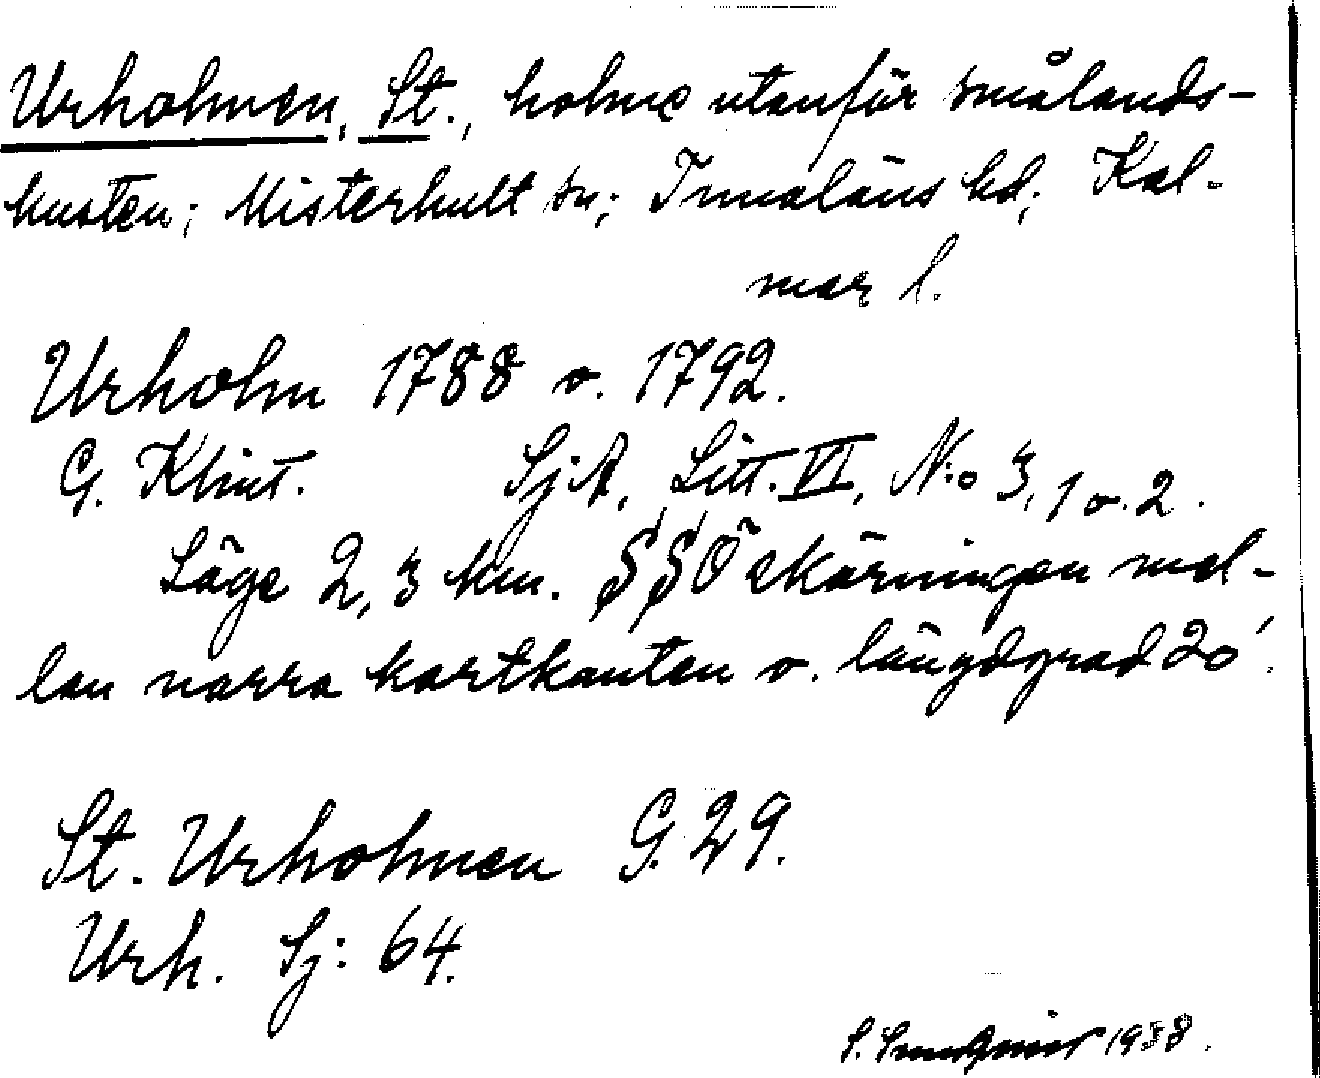 Urholmen, St., holme utanför smålands-
kusten; Misterhult sn; Tunaläns hd; Kal-
mar l.
Urholm 1788 o. 1792.
G. Klint. SjA, Litt. VI, N:o 3, 1 o. 2.
Läge 2,3 km. SSÖ skärningen mel-
lan norra kartkanten o. längdgrad 20'.
St. Urholmen G. 29.
Urh. Sj: 64.
S. 1938.